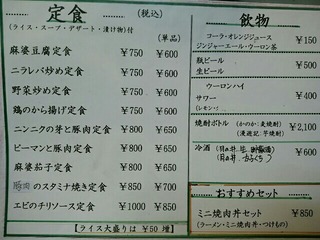 定食 (税込)
(ライス・スープ・デザート・漬け物)付 (単品)
麻婆豆腐定食 ¥750 ¥600
ニラレバ炒め定食 ¥750 ¥600
野菜炒め定食 ¥750 ¥600
鶏のから揚げ定食 ¥750 ¥600
ニンニクの芽と豚肉定食 ¥800 ¥650
ピーマンと豚肉定食 ¥800 ¥650
麻婆茄子定食 ¥800 ¥650
のスタミナ焼き定食 ¥850 ¥700
エビのチリソース定食 ¥1000 ¥850
【ライス大盛りは ¥50 増】
飲物
コーラ・オレンジジュース ¥150
ジンジャーエール・ウーロン茶
瓶ビール ¥500
生ビール
ウーロンハイ
サワー ¥400
(レモン・
焼酎ボトル (かのか:麦焼酎) ¥2,100
(漫遊記:芋焼酎)
冷酒 ¥600
おすすめセット
ミニ焼肉丼セット ¥850
(ラーメン・ミニ焼肉丼・つけもの)